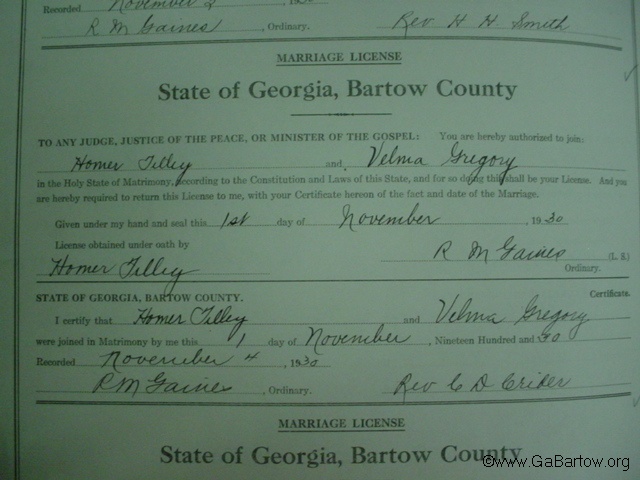 Recorded November 2, 1930
R M Gaines, Ordinary. Rev H H Smith
MARRIAGE LICENSE
State of Georgia, Bartow County
TO ANY JUDGE, JUSTICE OF THE PEACE, OR MINISTER OF THE GOSPEL: You are hereby authorized to join:
Homer Tilley and Velma Gregory
in the Holy State of Matrimony, according to the Constitution and Laws of this State, and for so doing this shall be your License. And you
are hereby required to return this License to me, with your Certificate hereon of the fact and date of the Marriage.
Given under my hand and seal this 1st day of November 1930
License obtained under oath by R M Gaines (L. S.)
Homer Tilley Ordinary.
STATE OF GEORGIA, BARTOW COUNTY. Certificate.
I certify that Homer Tilley and Velma Gregory
were joined in Matrimony by me this 1 day of November, Nineteen Hundred and 30
Recorded November 4, 1930
R M Gaines, Ordinary. Rev C D Crider
MARRIAGE LICENSE
State of Georgia, Bartow County
©www.GaBartow.org